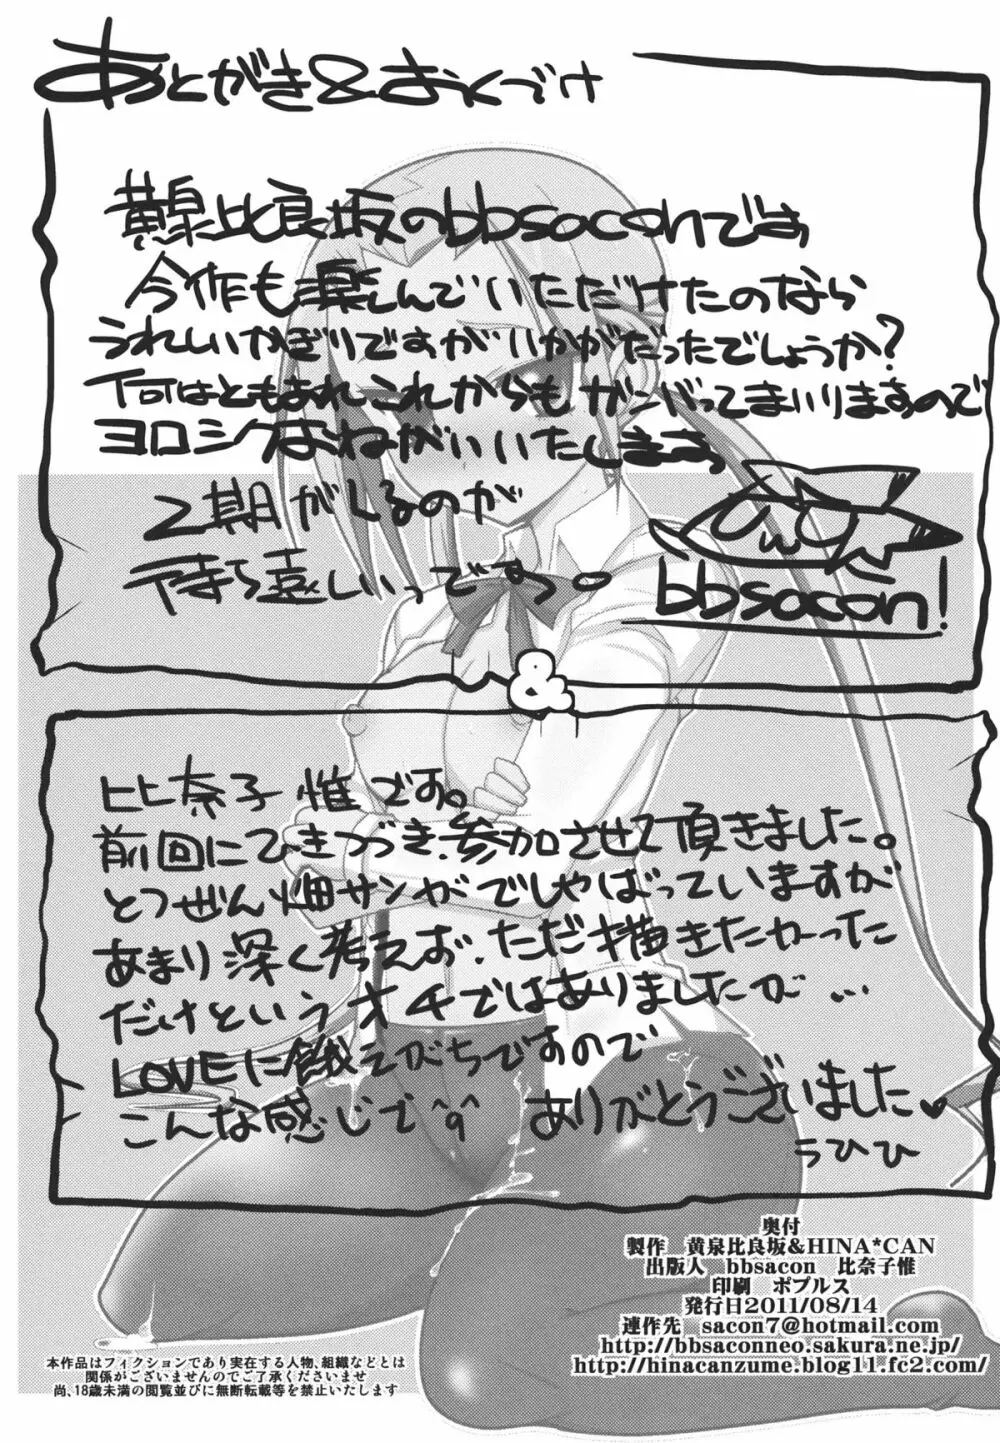 あとがき&おくづけ
黄泉比良坂のbbsaconです
今作も楽しんでいただけたのなら
うれしいかぎりですがいかがだったでしょうか?
何はともあれこれからもガンバってまいりますので
ヨロシクおねがいいたします。
2期がくるのが
待ち遠しいっですっ。
bbsacon!
&
比奈子 惟です。
前回にひきつづき、参加させて頂きました。
とつぜん畑サンがでしゃばっていますが
あまり深く考えず、ただ描きたかった
だけというオチではありましたが...
LOVEに餓えがちですので
こんな感じで^q^ ありがとうございました♥
うひひ
奥付
製作 黄泉比良坂&HINA*CAN
出版人 bbsacon 比奈子惟
印刷 ポプルス
発行日2011/08/14
連作先 sacon7@hotmail.com
http://bbsaconneo.sakura.ne.jp/
http://hinacanzume.blog11.fc2.com/
本作品はフィクションであり実在する人物、組織などとは
関係がございませんのでご了承くださいませ
尚、18歳未満の閲覧並びに無断転載等を禁止いたします